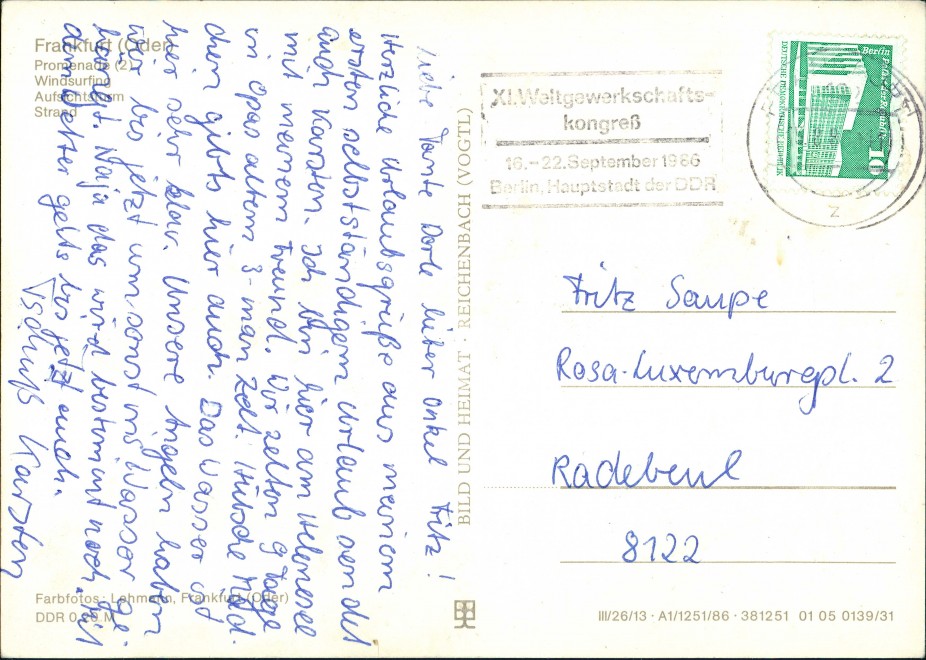 Frankfurt (Oder)
Promenade (2)
Windsurfing
Aufsichtsturm
Strand
Liebe Tante Dorle lieber Onkel Fritz!
Herzliche Urlaubsgrüße aus meinem
ersten selbstständigem Urlaub sendet
auch Karsten. Ich bin hier am Helenesee
mit meinem Freund. Wir zelten 9 Tage
in Opas altem 3-man Zelt. Hübsche Mäd.
chen gibts hier auch. Das Wasser ist
hier sehr klar. Unsere Angeln haben
wir bis jetzt umsonst ins Wasser ge-
hängt. Naja das wird bestimmt noch. Mit
dem Wetter gehts bis jetzt auch.
Tschüß Karsten
Farbfotos: Lehmann, Frankfurt (Oder)
DDR 0,20 M
BILD UND HEIMAT · REICHENBACH (VOGTL)
XI. Weltgewerkschafts-
kongreß
16.-22. September 1986
Berlin, Hauptstadt der DDR
Berlin
DEUTSCHE DEMOKRATISCHE REPUBLIK
10
z
Fritz Saupe
Rosa-Luxemburgpl. 2
Radebeul
8122
III/26/13 · A1/1251/86 · 381251 01 05 0139/31